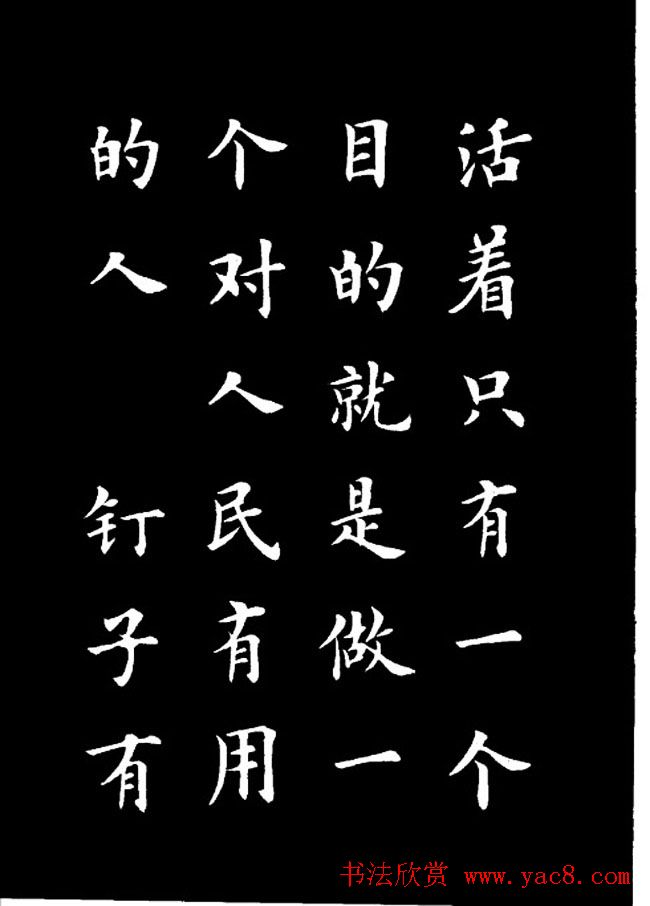 活着只有一个
目的就是做一
个对人民有用
的人 钉子有
书法欣赏 www.yac8.com